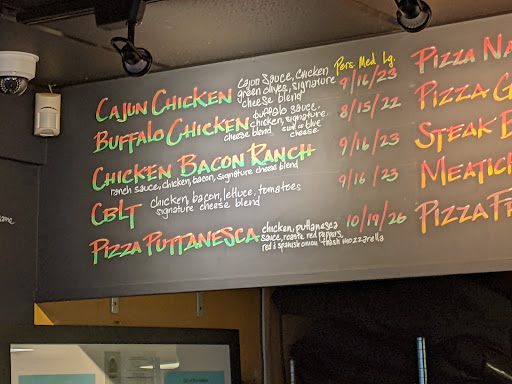 Pers. Med. Lg.
CAJUN CHICKEN cajun sauce, chicken
green olives, signature
cheese blend 9/16/23
BUFFALO CHICKEN buffalo sauce,
chicken, signature
cheese blend and blue
cheese 8/15/22
CHICKEN BACON RANCH 9/16/23
ranch sauce, chicken, bacon, signature cheese blend
CBLT chicken, bacon, lettuce, tomatoes
signature cheese blend 9/16/23
PIZZA PUTTANESCA chicken, puttanesca
sauce, roaste red peppers,
red & spanish onion, fresh mozzarella 10/19/26
PIZZA NA
PIZZA G
STEAK B
MEATIC
PIZZA FR